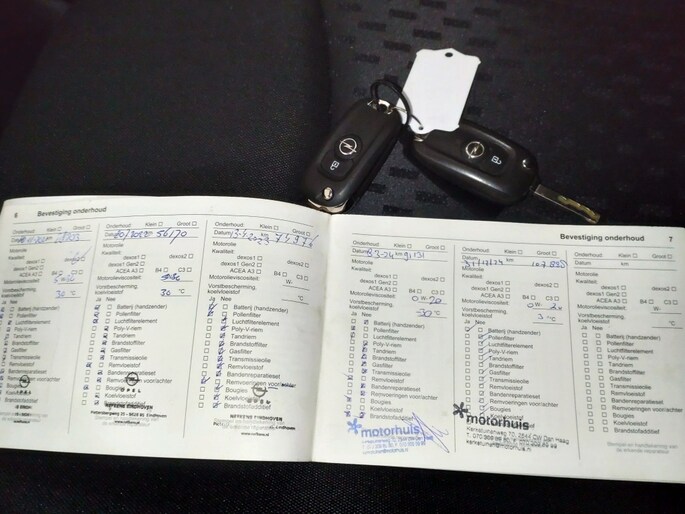 6 Bevestiging onderhoud
Onderhoud: Klein Groot
Datum km
Motorolie
Kwaliteit:
dexos1 dexos2
dexos1 Gen2
ACEA A3 B4 C3
Motorolieviscositeit:
Vorstbescherming,
koelvloeistof 30 °C
Ja Nee
Onderhoud: Klein Groot
56170
Motorolie
Kwaliteit:
dexos1 dexos2
dexos1 Gen2
ACEA A3 B4 C3
Motorolieviscositeit:
Vorstbescherming,
koelvloeistof 30 °C
Ja Nee
Batterij (handzender)
Pollenfilter
Luchtfilterelement
Poly-V-riem
Tandriem
Brandstoffilter
Gasfilter
Transmissieolie
Remvloeistof
Bandenreparatieset
Remvoeringen voor/achter
Bougies
Koelvloeistof
Brandstofadditief
OPEL
Onderhoud: Klein Groot
Datum km
Motorolie
Kwaliteit:
dexos1 dexos2
dexos1 Gen2
ACEA A3 B4 C3
Motorolieviscositeit: W-
Vorstbescherming,
koelvloeistof °C
Ja Nee
Batterij (handzender)
Pollenfilter
Luchtfilterelement
Poly-V-riem
Tandriem
Brandstoffilter
Gasfilter
Transmissieolie
Remvloeistof
Bandenreparatieset
Remvoeringen voor/achter
Bougies
Koelvloeistof
Brandstofadditief
Bevestiging onderhoud 7
Onderhoud: Klein Groot
Datum
Motorolie
Kwaliteit:
dexos1 dexos2
dexos1 Gen2
ACEA A3 B4 C3
Motorolieviscositeit: 0W-20
Vorstbescherming,
koelvloeistof -30 °C
Ja Nee
Batterij (handzender)
Pollenfilter
Luchtfilterelement
Poly-V-riem
Tandriem
Brandstoffilter
Gasfilter
Transmissieolie
Remvloeistof
Bandenreparatieset
Remvoeringen voor/achter
Bougies
Koelvloeistof
Brandstofadditief
motorhuis
Onderhoud: Klein Groot
Datum km
Motorolie
Kwaliteit:
dexos1 dexos2
dexos1 Gen2
ACEA A3 B4 C3
Motorolieviscositeit:
Vorstbescherming,
koelvloeistof °C
Ja Nee
Batterij (handzender)
Pollenfilter
Luchtfilterelement
Poly-V-riem
Tandriem
Brandstoffilter
Gasfilter
Transmissieolie
Remvloeistof
Bandenreparatieset
Remvoeringen voor/achter
Bougies
Koelvloeistof
Brandstofadditief
motorhuis
Onderhoud: Klein Groot
Datum km
Motorolie
Kwaliteit:
dexos1 dexos2
dexos1 Gen2
ACEA A3 B4 C3
Motorolieviscositeit: W-
Vorstbescherming,
koelvloeistof °C
Ja Nee
Batterij (handzender)
Pollenfilter
Luchtfilterelement
Poly-V-riem
Tandriem
Brandstoffilter
Gasfilter
Transmissieolie
Remvloeistof
Bandenreparatieset
Remvoeringen voor/achter
Bougies
Koelvloeistof
Brandstofadditief